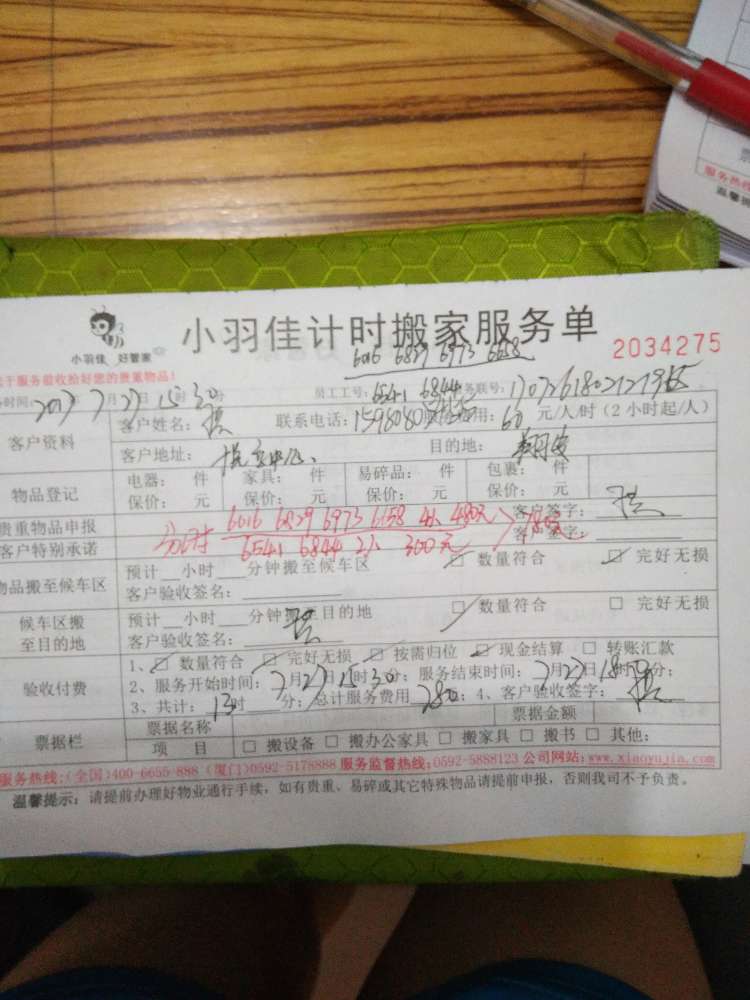 服务热线
温馨提
小羽佳 好管家
小羽佳计时搬家服务单
2034275
6016 6829 6973 6658
于服务验收给好您的贵重物品!
时间: 2017 7月27日15时30分
员工工号: 6541 6844
务联号:
客户资料
客户姓名:
联系电话:
用: 60 元/人/时(2小时起/人)
客户地址:
目的地:
物品登记
电器: 件 家具: 件 易碎品: 件 包裹: 件
保价: 元 保价: 元 保价: 元 保价: 元
贵重物品申报
客户签字:
6016 6829 6973 6158 480元
客户特别承诺
6541 6844 300元
客户签字:
物品搬至候车区
预计__小时___分钟搬至候车区
数量符合 完好无损
客户验收签名:
候车区搬
至目的地
预计__小时___分钟 至目的地
数量符合 完好无损
客户验收签名:
验收付费
1、 数量符合 完好无损 按需归位 现金结算 转账汇款
2、服务开始时间: 7月27日15时30分; 服务结束时间: 7月27日18时 分;
3、共计: 13时 分; 总计服务费用 780; 4、客户验收签字:
票据栏
票据名称 票据金额
项 目 搬设备 搬办公家具 搬家具 搬书 其他:
服务热线:(全国)400-6655-888 (厦门)0592-5178888 服务监督热线:0592-5888123 公司网站:www.xiaoyujia.com
温馨提示: 请提前办理好物业通行手续,如有贵重、易碎或其它特殊物品请提前申报,否则我司不予负责。